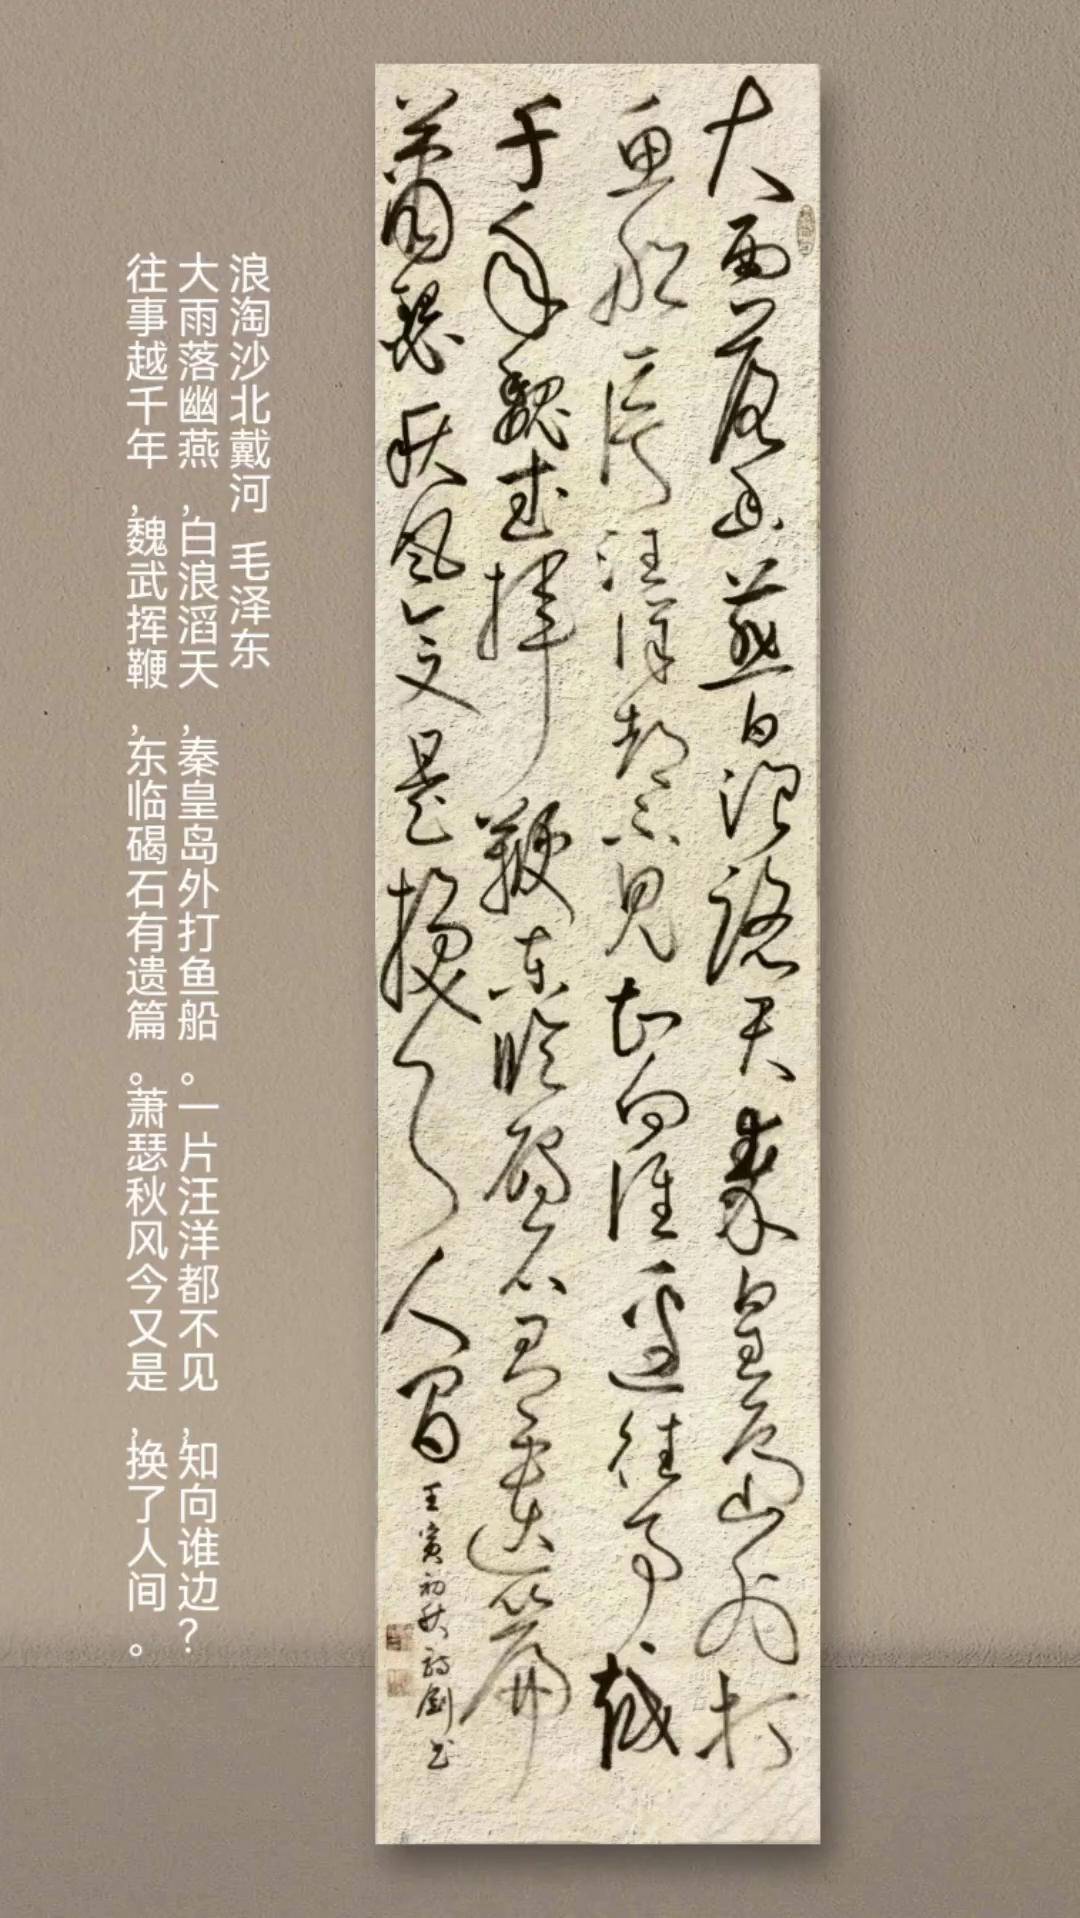 大雨落幽燕白浪滔天秦皇岛外打
鱼船一片汪洋都不见知向谁边往事越
千年魏武挥鞭东临碣石有遗篇
萧瑟秋风今又是换了人间
壬寅初秋诗剑书
浪淘沙北戴河 毛泽东
大雨落幽燕,白浪滔天,秦皇岛外打鱼船。一片汪洋都不见,知向谁边?
往事越千年,魏武挥鞭,东临碣石有遗篇。萧瑟秋风今又是,换了人间。